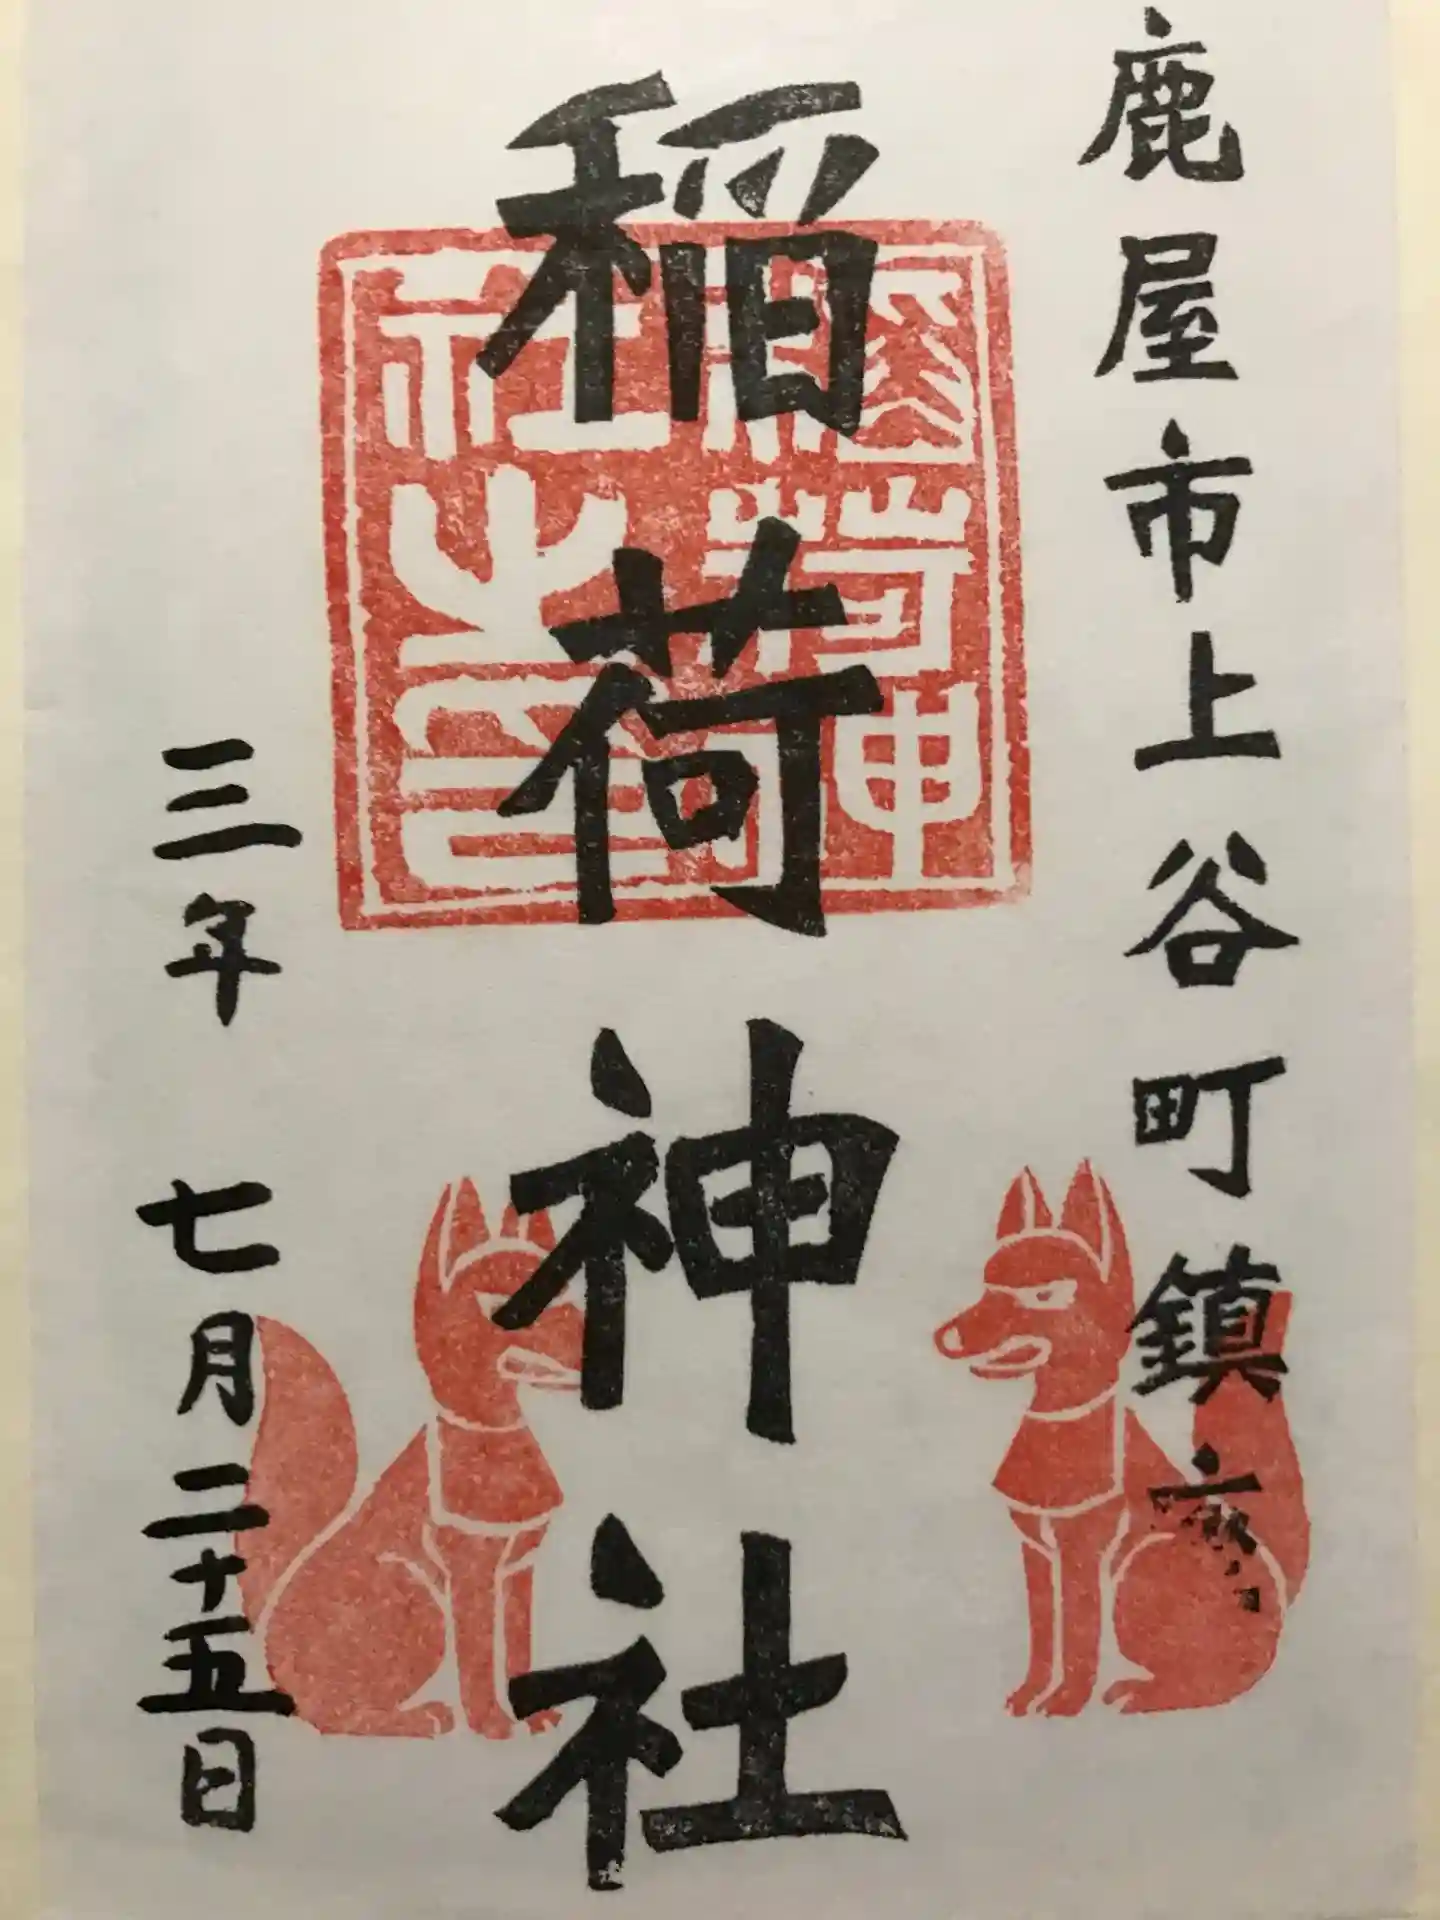 鹿屋市上谷町鎮座
稲荷神社
稲荷神社之印
三年 七月二十五日